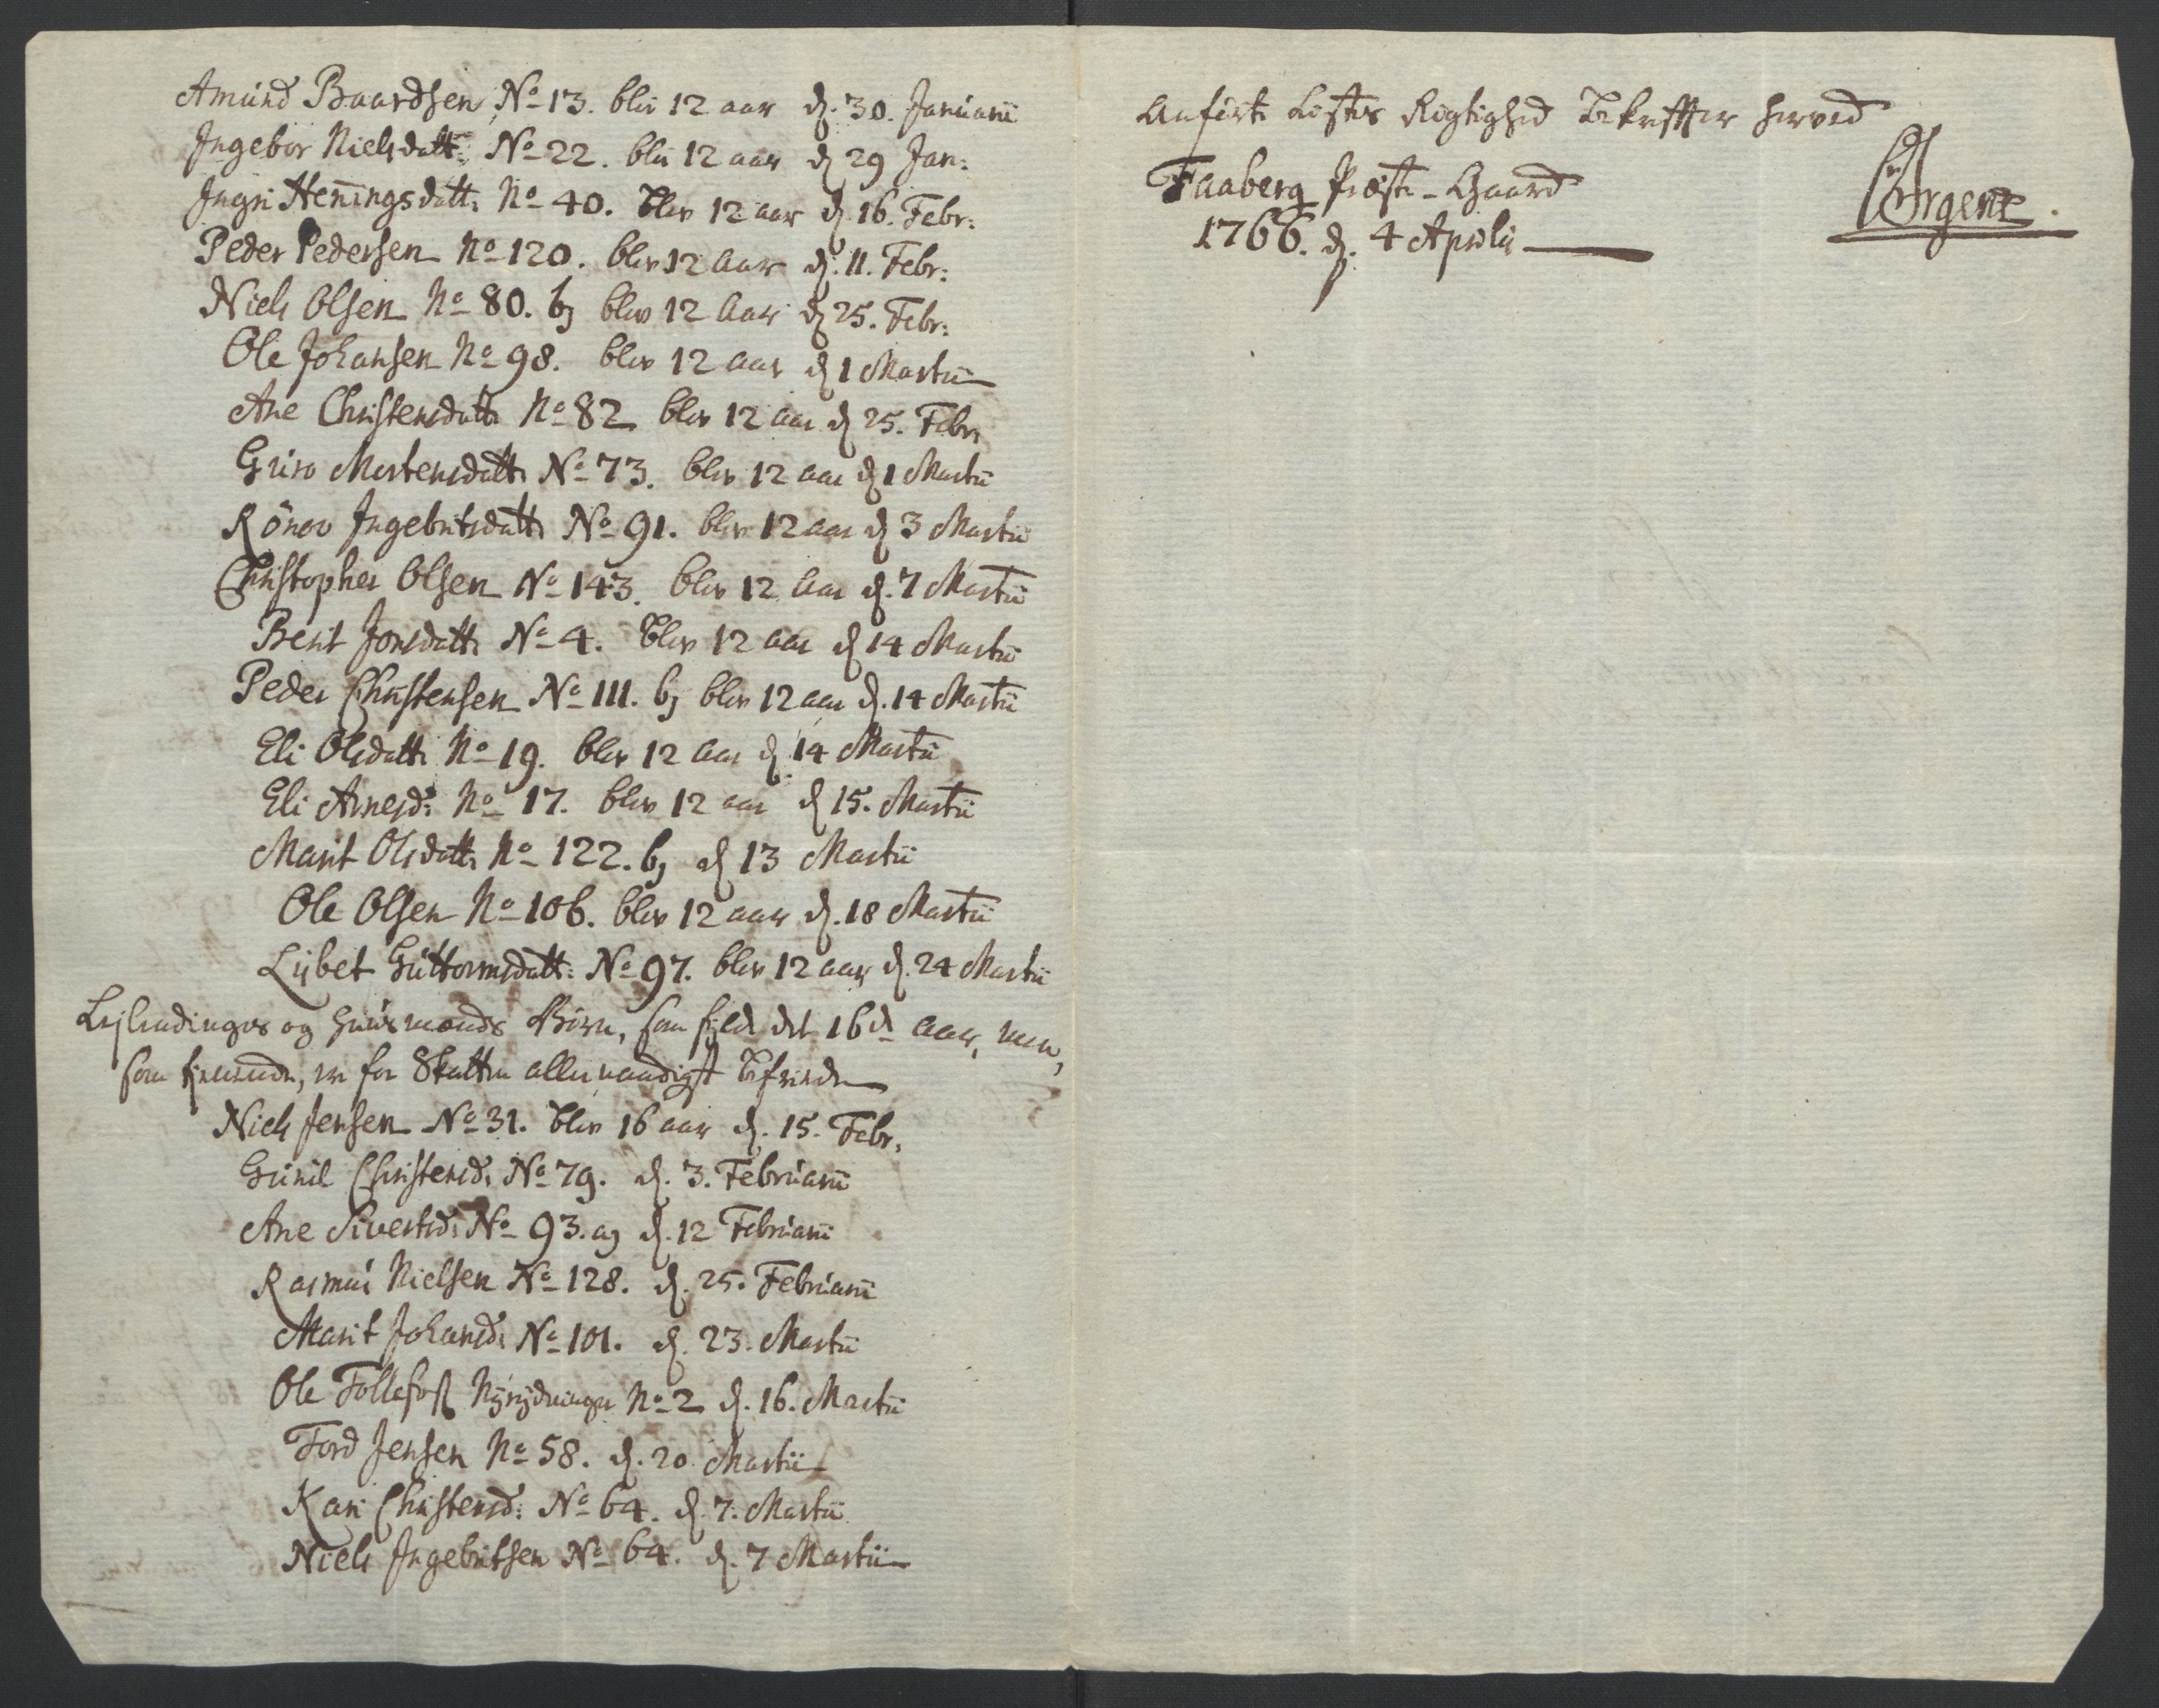 Amund Baardsen No 13. blev 12 aar d. 30. Januarii
Ingebor Nielsdatt: No 22. blev 12 aar d 29 Jan:
Ingri Henningsdatt: No 40. blev 12 aar d. 16. Febr:
Peder Pedersen No 120. blev 12 Aar d. 11. Febr:
Niels Olsen No 80. b) blev 12 Aar d 25. Febr:
Ole Johansen No 98. blev 12 aar d 1 Martii
Ane Christensdatt: No 82 blev 12 aar d 25. Febr:
Guro Mortensdatt: No 73. blev 12 aar d 1 Martii
Rönov Ingebritsdatt: No 91. blev 12 aar d 3 Martii
Christopher Olsen No 143. blev 12 Aar d. 7 Martii
Berit Jonsdatt: No 4. blev 12 aar d 14 Martii
Peder Christensen No 111. b) blev 12 aar d. 14 Martii
Eli Olsdatt: No 19. blev 12 Aar d. 14 Martii
Eli Arnesd: No 17. blev 12 aar d 15. Martii
Marit Olsdatt: No 122. b) d 13 Martii
Ole Olsen No 106. blev 12 aar d. 18 Martii
Lisbet Guttormsdatt: No 97. blev 12 aar d. 24 Martii
Lejlendinges og Huusmænds Börn, som fyldt det 16de Aar, men,
som tienende, er for Skatten allernaadigst befriede
Niels Jensen No 31. blev 16 aar d. 15. Febr.
Gunil Christensd: No 79. d. 3. Februarii
Ane Sivertsd: No 93. a) d. 12 Februarii
Rasmus Nielsen No 128. d. 25. Februarii
Marit Johansd: No 101. d. 23. Martii
Ole Follefoss Nyrydninger No 2 d. 16. Martii
Tord Jensen No 58. d. 20. Martii
Kari Christensd: No 64. d. 7. Martii
Niels Ingebritsen No 64. d. 7 Martii
Anförte Listes Rigtighed bekreffter herved
Faaberg Præste-Gaard
1766. d. 4 Aprilis
Örgene.